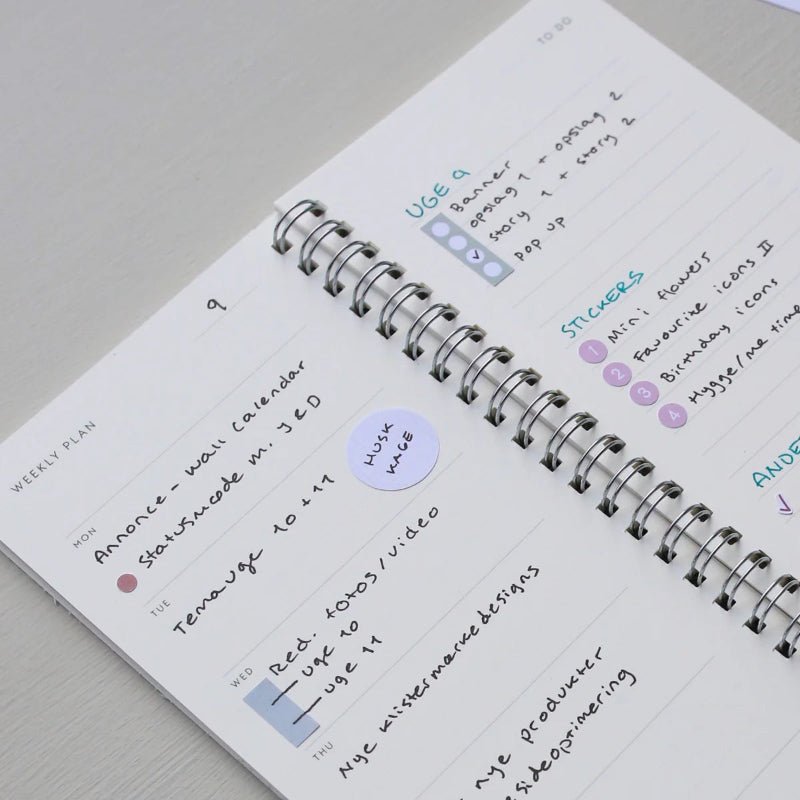 WEEKLY PLAN
9
MON
Annonce - Wall Calendar
Statusmøde m. J & D
HUSK
KAGE
TUE
Temauge 10 + 11
WED
Red. fotos/video
uge 10
uge 11
THU
Nye klistermærkedesigns
nye produkter
sideoptimering
TO DO
UGE 9
Banner
opslag 1 + opslag 2
story 1 + story 2
Pop up
STICKERS
1 Mini flowers
2 Favourite icons II
3 Birthday icons
4 Hygge/me time